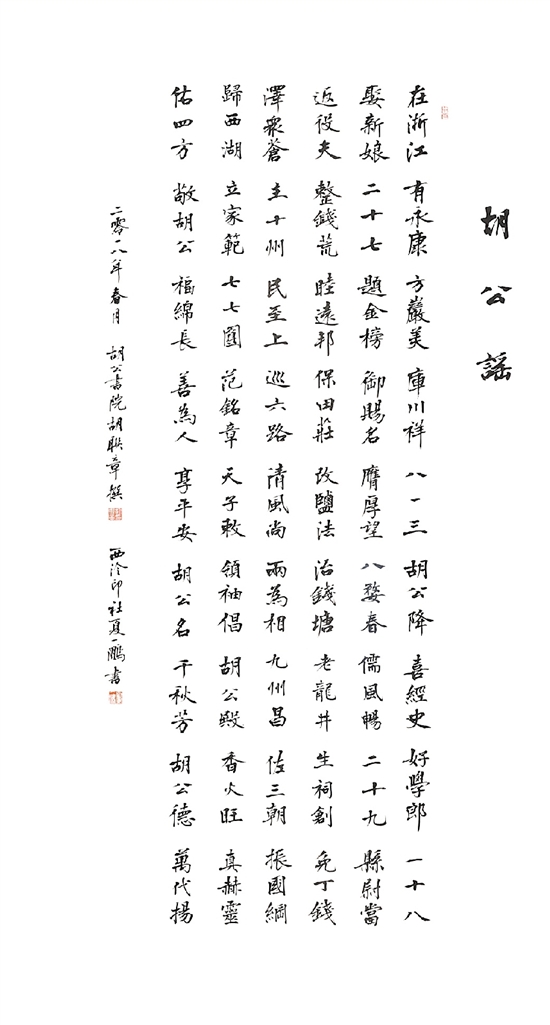 胡公謠
在浙江 有永康 方巖美 庫川祥 八一三 胡公降 喜經史 好學郎 一十八
娶新娘 二十七 題金榜 御賜名 膺厚望 八婺春 儒風暢 二十九 縣尉當
返役夫 整錢荒 睦遠邦 保田莊 改鹽法 治錢塘 老龍井 生祠創 免丁錢
澤眾蒼 主十州 民至上 巡六路 清風尚 兩為相 九州昌 佐三朝 振國綱
歸西湖 立家範 七七圓 范銘章 天子敕 領袖倡 胡公殿 香火旺 真赫靈
佑四方 敬胡公 福綿長 善為人 享平安 胡公名 千秋芳 胡公德 萬代揚
二零一八年春月 胡公書院胡聯章撰 西泠印社夏一鵬書